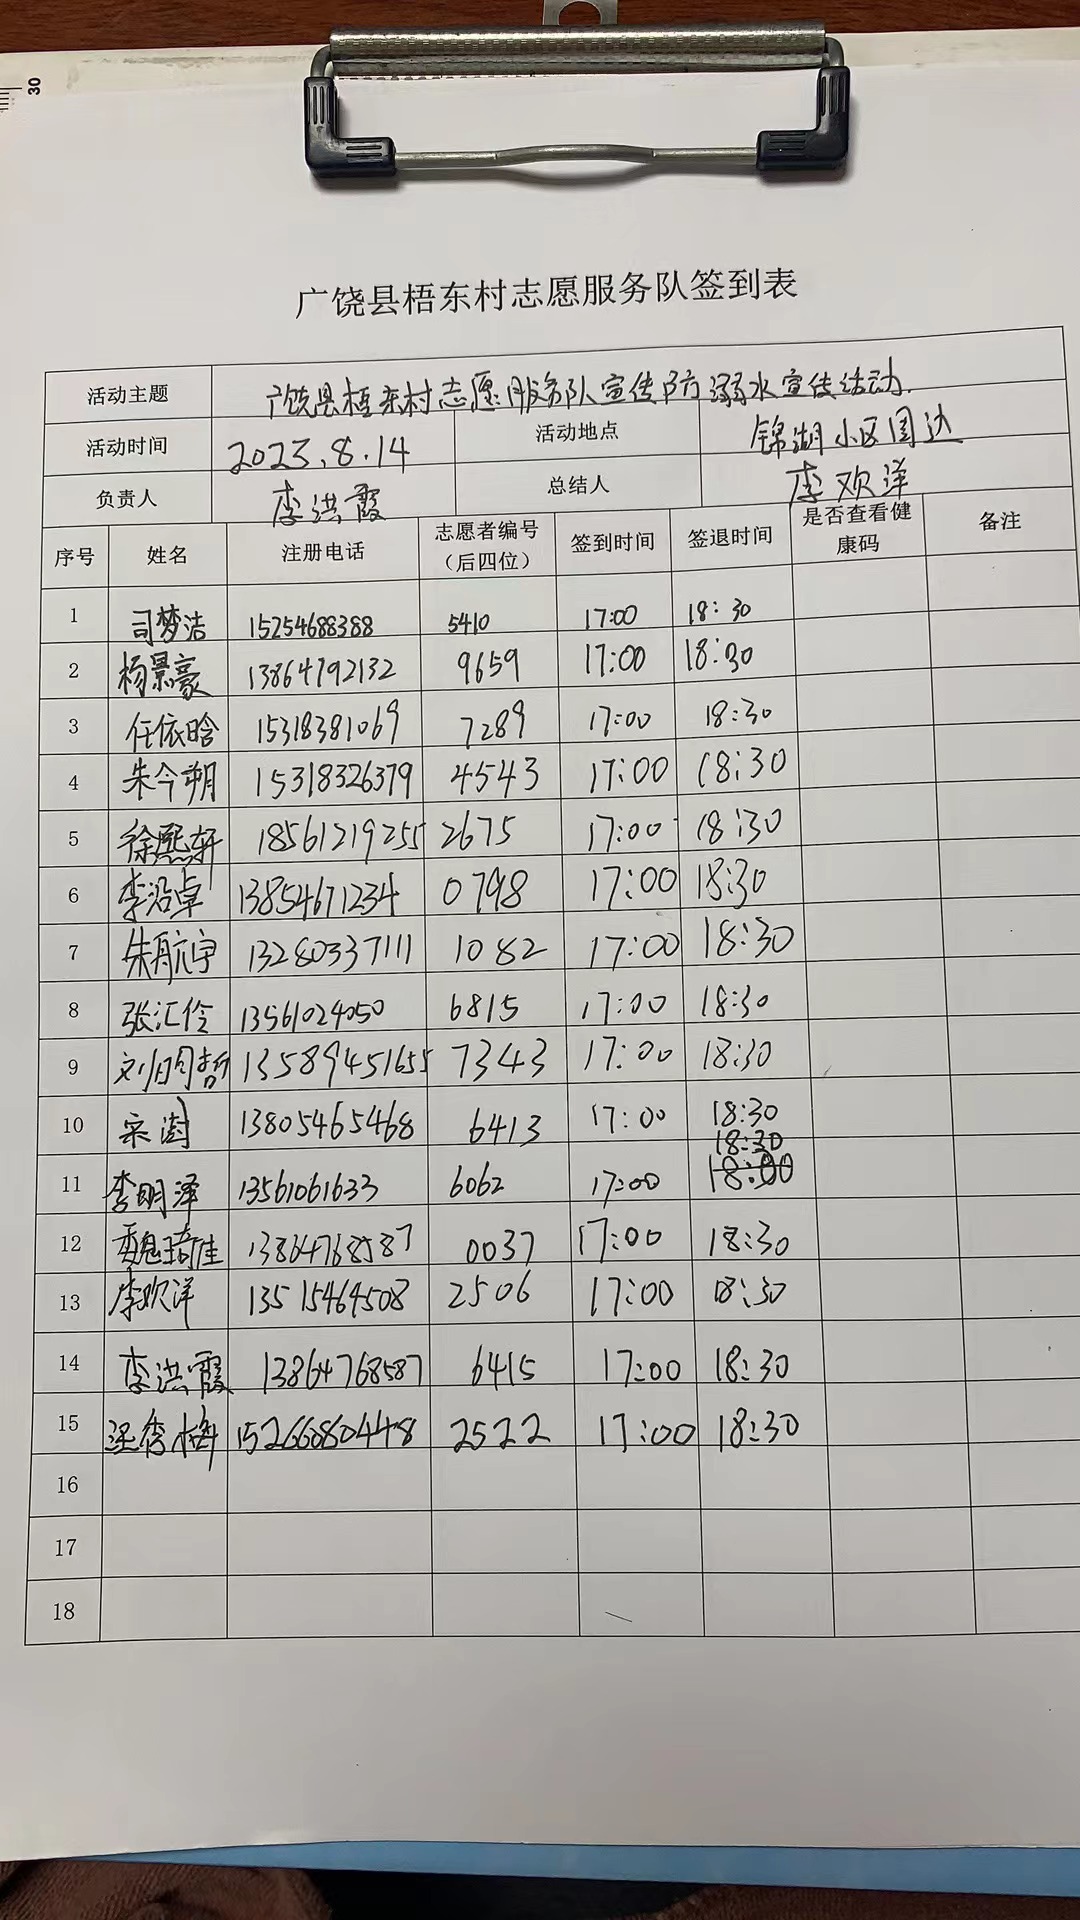 30
广饶县梧东村志愿服务队签到表
活动主题 广饶县梧东村志愿服务队宣传防溺水宣传活动.
活动时间 2023.8.14 活动地点 锦湖小区周边
负责人 李洪霞 总结人 李欢洋
序号 姓名 注册电话 志愿者编号（后四位） 签到时间 签退时间 是否查看健康码 备注
1 司梦洁 15254688388 5410 17:00 18:30
2 杨景豪 13864792132 9659 17:00 18:30
3 任依晗 15318381069 7289 17:00 18:30
4 朱今朔 15318326379 4543 17:00 18:30
5 徐熙轩 18561219255 2675 17:00 18:30
6 李沿卓 13854671234 0798 17:00 18:30
7 朱航宇 13280337111 1082 17:00 18:30
8 张汇伶 13561024050 6815 17:00 18:30
9 刘 哲 13589451655 7343 17:00 18:30
10 宋澍 13805465468 6413 17:00 18:30
18:30
11 李明泽 13561061633 6062 17:00 18:00
12 魏琦佳 13864768587 0037 17:00 18:30
13 李欢洋 13515464508 2506 17:00 18:30
14 李洪霞 13864768587 6415 17:00 18:30
15 秀梅 15266080448 2522 17:00 18:30
16
17
18